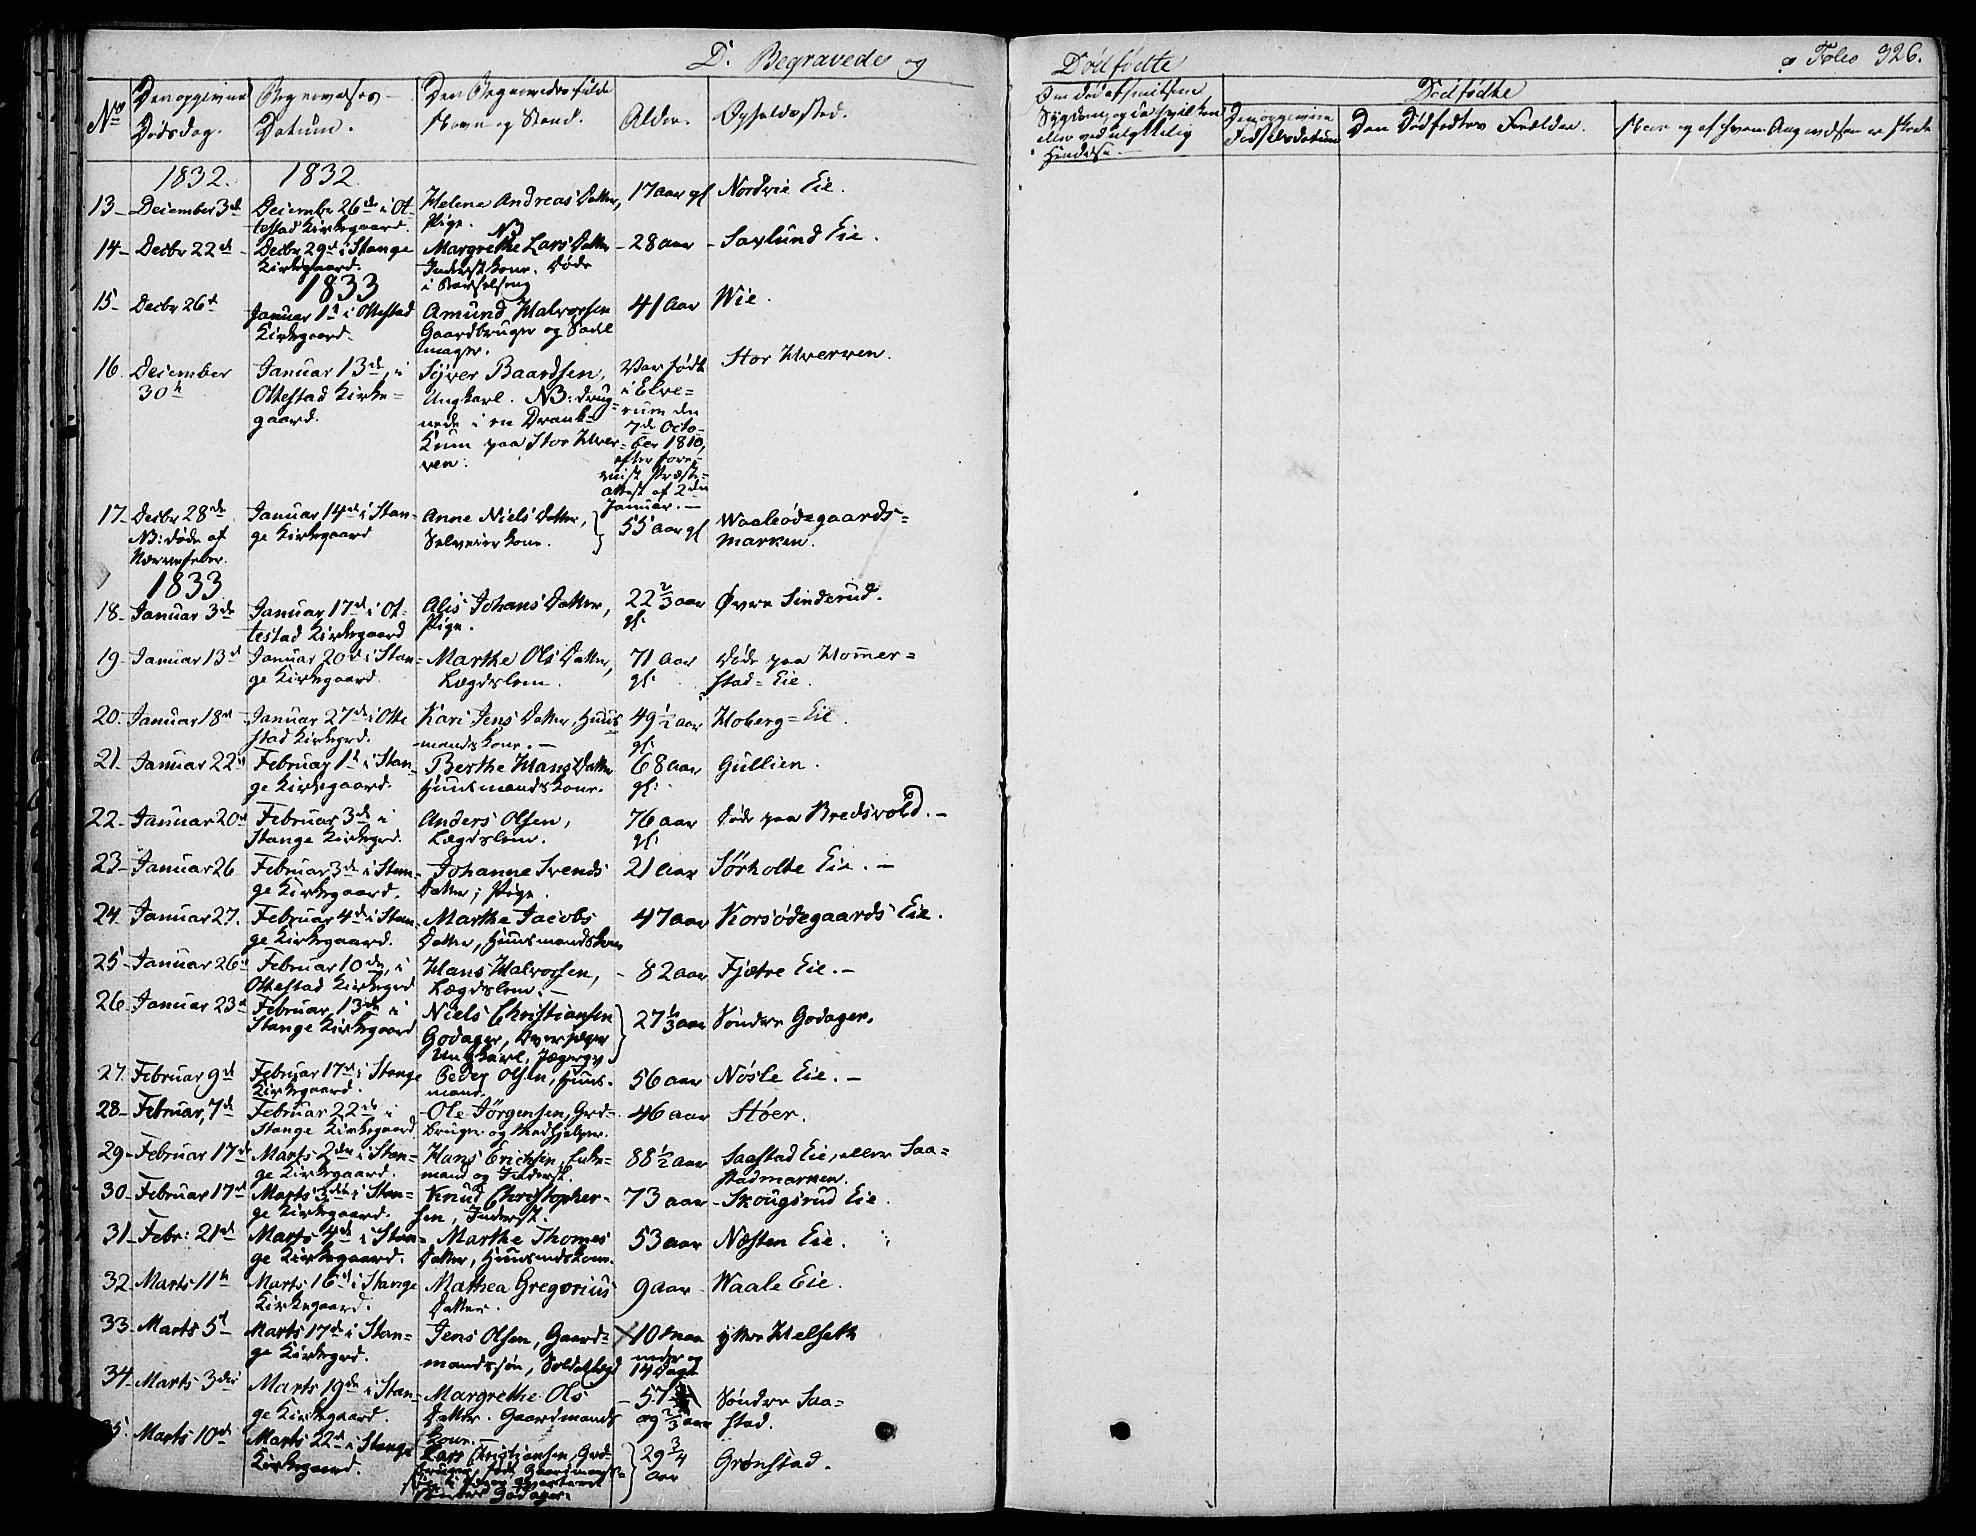 D. Begravede og
Dødfødte
Folio 326.
No
Den opgivne Dødsdag.
Begravelses-Datum.
Den Begravedes fulde Navn og Stand.
Alder.
Opholdssted.
Dødfødte
Den Dødfødtes Forældre.
1832. 1832.
13 - December 3de
December 26de i Ot-
testad Kirkegaard.
Helene Andreas Datter,
Pige.
17 aar gl
Nordvie Eie.
14 - Decbr 22de
Decbr 29de i Stange
Kirkegaard.
NB
Margrethe Lars Datter
Inderstkone. Døde
i Barselseng
28 aar
Saxlund Eie.
1833
15 - Decbr 26de
Januar 1ste i Ottestad
Kirkegaard.
Amund Halvorsen
Gaardbruger og Sadel
mager.
41 Aar
Wie.
16. December
30te
Januar 13de, i
Ottestad Kirke-
gaard.
Syver Baardsen,
Ungkarl. NB: drug-
nede i en Drank-
Kum paa Stor Hver-
ven.
Var født
i Elve-
rum den
7de Octo-
ber 1810,
efter fore-
viist Præste-
attest af 2den
Januar. -
Stor Hverven.
17 - Decbr 28de
NB: døde af
Nervefeber.
Januar 14de i Stan-
ge Kirkegaard
Anne Niels Datter,
Selveierkone.
55 aar gl
Waaleødegaards-
marken.
1833
18. Januar 3de
Januar 17de i Ot-
testad Kirkegaard
Alis Johans Datter,
Pige.
22 2/3 aar
gl.
Øvre Sinderud.
19 - Januar 13de
Januar 20de i Stan-
ge Kirkegaard.
Marthe Ols Datter,
Lægdslem.
71 aar
gl.
Døde paa Hommer-
stad-Eie.
20. Januar 18de
Januar 27de i Otte
stad Kirkegrd.
Kari Jens Datter, Huus
mandskone. -
49 1/2 aar
gl.
Hoberg-Eie.
21 - Januar 22de
Februar 1ste i Stan-
ge Kirkegaard.
Berthe Hans Datter
Huusmandskone.
68 aar
gl.
Gullien.
22 - Januar 20de
Februar 3de i
Stange Kirkegrd.
Anders Olsen,
Lægdslem.
76 aar
gl.
Døde paa Bredsvold. -
23 - Januar 26
Februar 3de i Stan-
ge Kirkegaard.
Johanne Svends
Datter, Pige.
21 Aar
Sørholte Eie. -
24. Januar 27.
Februar 4de i Stan-
ge Kirkegaard.
Marthe Jacobs
Datter, Huusmandskone
47 aar
Korsødegaards Eie.
25 - Januar 26de
Februar 10de, i
Ottestad Kirkegrd
Hans Halvorsen,
Lægdslem. -
82 aar
Fjetre Eie. -
26. Januar 23de
Februar 13de i
Stange Kirkegaard
Niels Christiansen
Godager,
Ungkarl,
27 1/3 aar
Søndre Godager.
27. Februar 9de
Februar 17de i Stange
Kirkegaard.
Peder Olsen, Huus-
mand.
56 aar
Nøsle Eie. -
28 - Februar, 7de
Februar 22de i
Stange Kirkegaard
Ole Jørgensen, Grd-
bruger og Medhjelper.
46 aar
Støer.
29 - Februar 17de
Marts 2den i Stan-
ge Kirkegaard.
Hans Erichsen, Enke-
mand og Inderst.
88 1/2 aar
Saastad Eie, eller Saa-
stadmarken.
30 - Februar 17de
Marts 3die i Stan-
ge Kirkegaard.
Knud Christopher-
sen, Inderst.
73 aar
Skougsrud Eie.
31 - Febr: 21de
Marts 4de i Stan-
ge Kirkegaard.
Marthe Thomes
Datter, Huusmdskone.
53 aar
Næsten Eie.
32 - Marts 11te
Marts 16de i Stange
Kirkegaard.
Mathea Gregorius
Datter.
9 aar
Waale Eie.
33 - Marts 5te
Marts 17de i Stan-
ge Kirkegrd.
Jens Olsen, Gaard-
mandssøn,
10 Maa
neder og
14 Dage
yttre Helseth
34 - Marts 3die
Marts 19de i Stan-
ge Kirkegaard.
Margrethe Ols
Datter. Gaardmands
kone. -
57
og 2/3 aar
Søndre Saa-
stad.
35. Marts 10de
Marts 22de i Stange
Kirkegaard.
Lars Christiansen, Grd-
bruger,
29 3/4
aar
Grønstad.